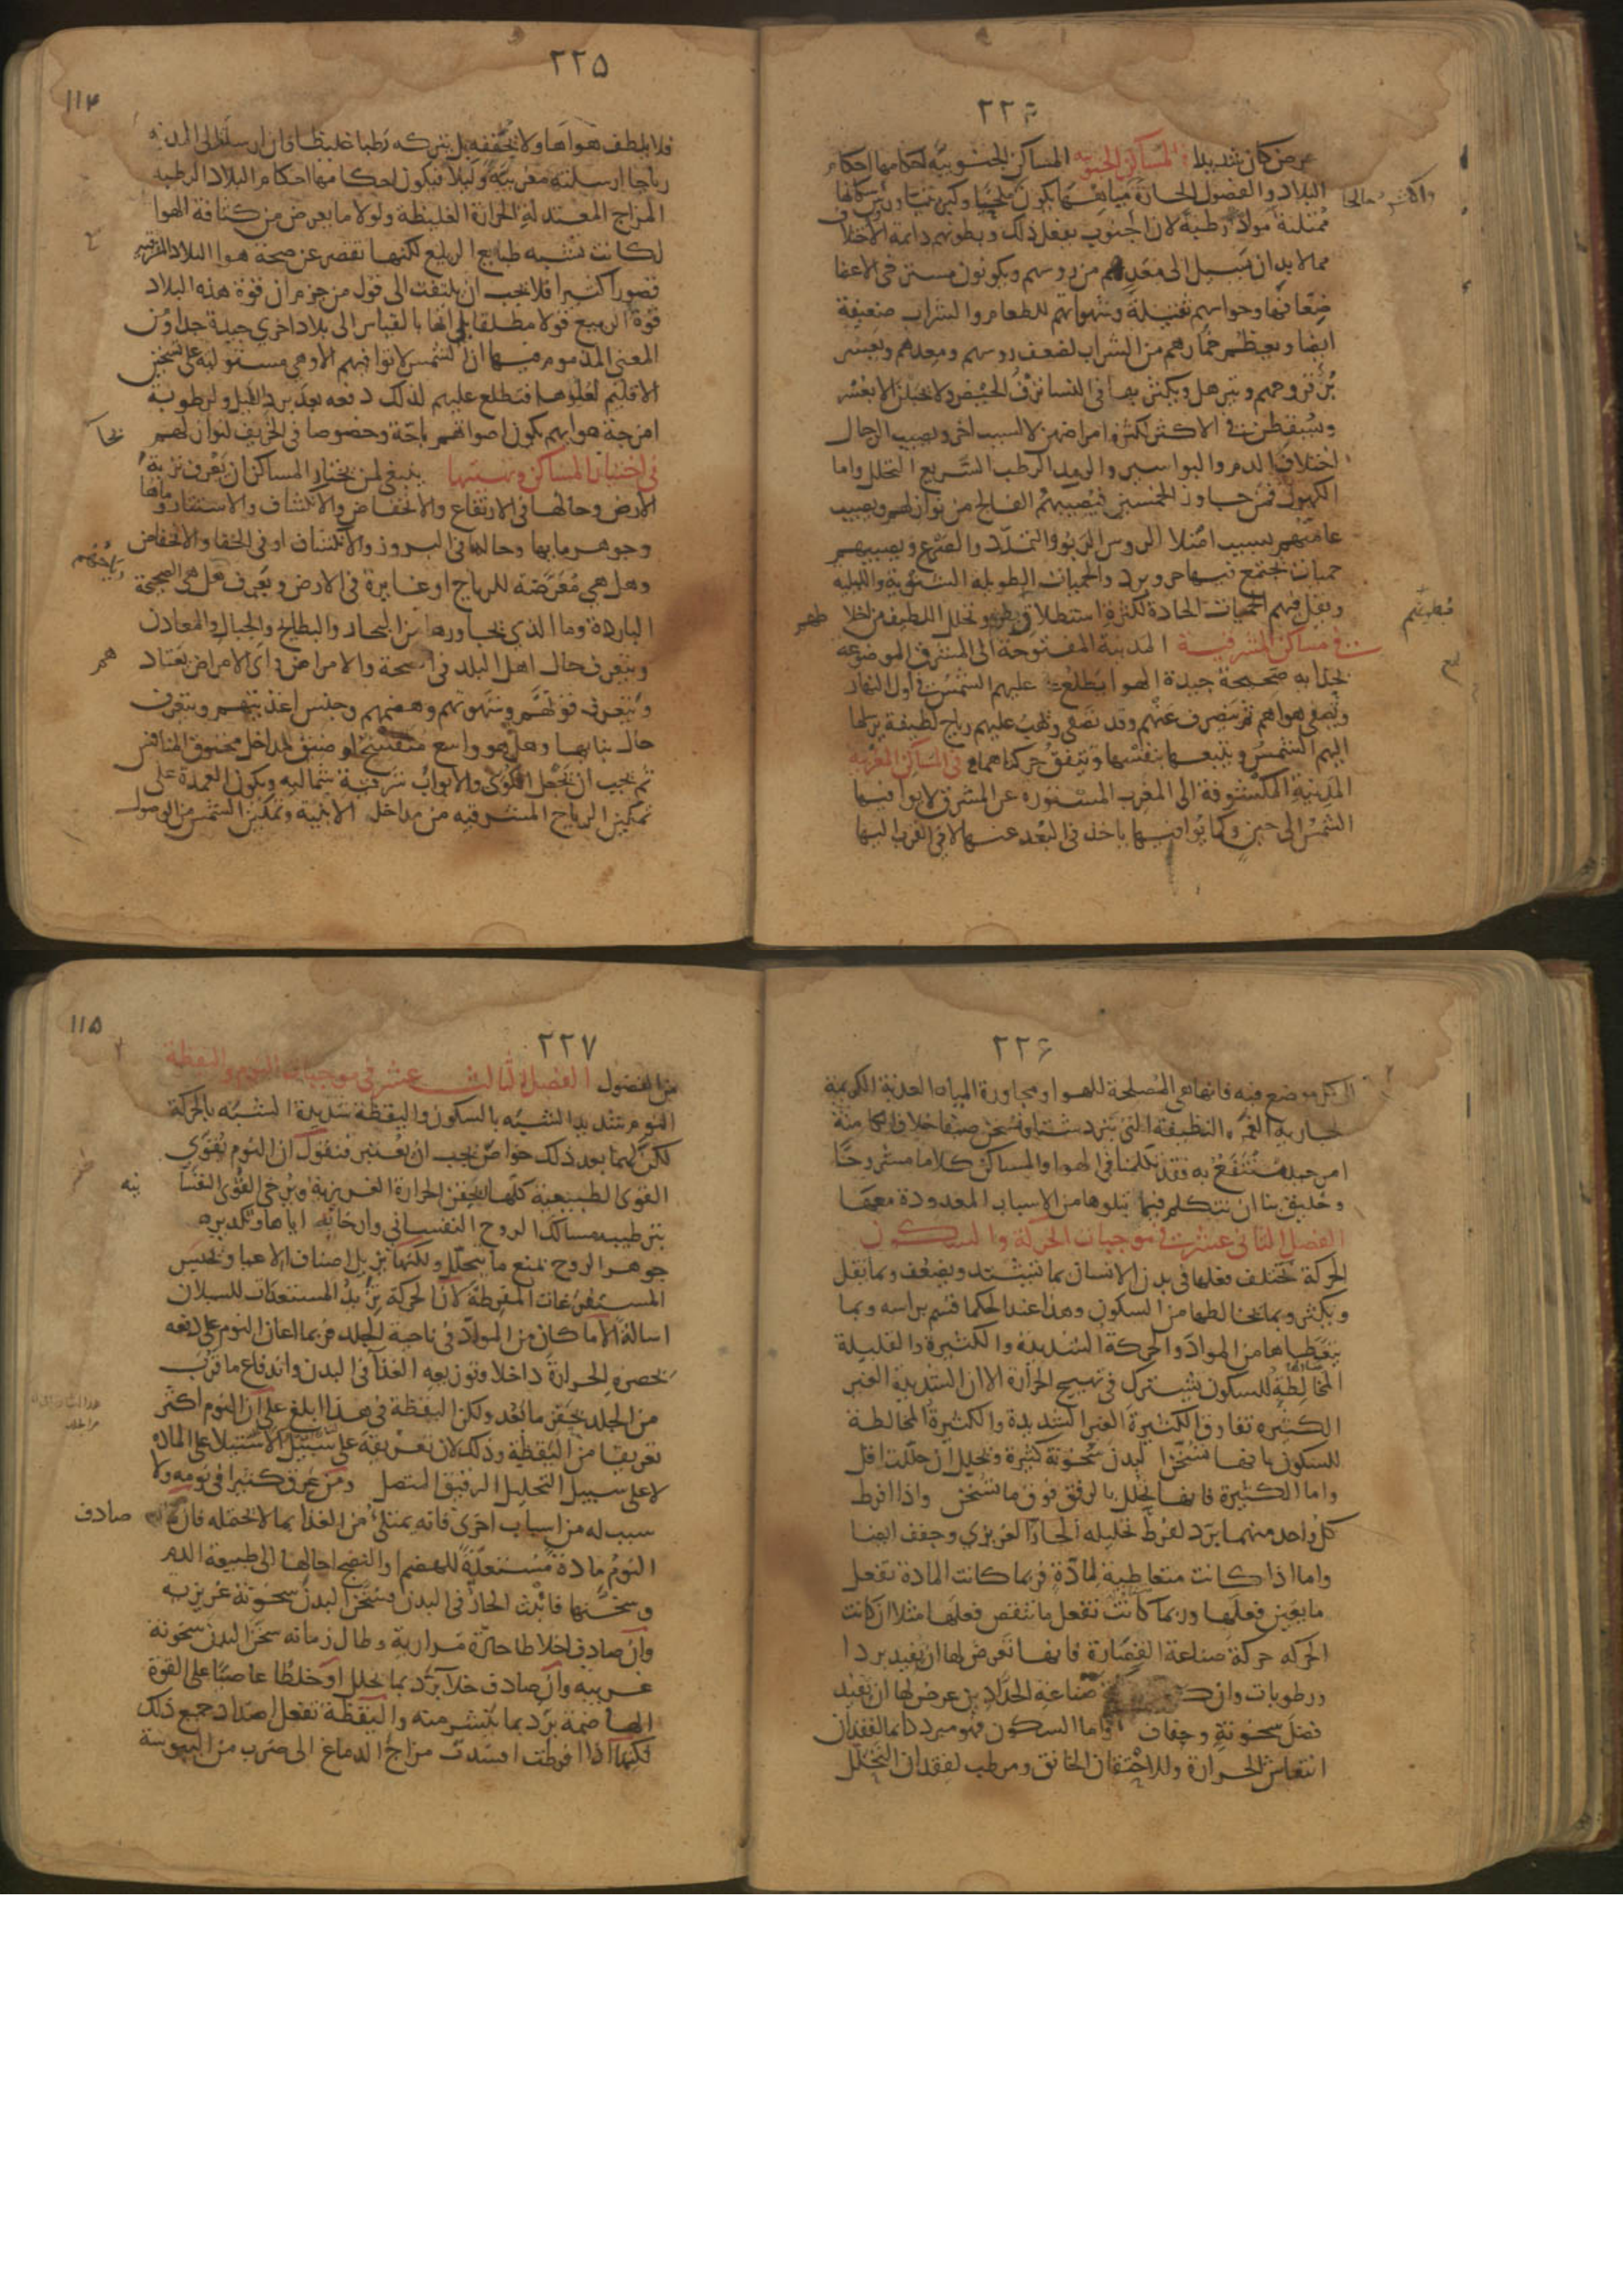 ٢٢٤
عرض كان شديدا في المساكن الجنوبية المساكن الجنوبية احكامها احكام
البلاد والفصول الحارة مياهها يكون ملحيا وكبريتيا ورؤس سكانها
ممتلية مواد رطبة لان الجنوب يفعل ذلك وبطونهم دايمة الاختلاف
مما لا بد ان يسيل الى معدهم من روسهم ويكونون مسترخي الاعضا
ضعافها وحواسهم ثقيلة وشهواتهم للطعام والشراب ضعيفة
ايضا ويعظم خمارهم من الشراب لضعف روسهم ومعدهم ويعسر
برؤ قروحهم وتترهل ويكثر بها في النسا نزف الحيض ولا يحبلن الا بعسر
ويسقطن في الاكثر لكثرة امراضهن لا لسبب اخر ويصيب الرجال
اختلاف الدم والبواسير والرمد الرطب السريع التحلل واما
الكهول فمن جاوز الخمسين فيصيبهم الفالج من نوازلهم ويصيب
عامتهم لسبب امتلا الروس الربو والتمدد والصرع ويصيبهم
حميات يجتمع فيها حر وبرد والحميات الطويلة الشتوية والليلية
ويقل فيهم الحميات الحادة لكثرة استطلاق بطونهم وتحلل اللطيف من اخلا طهم
في مساكن المشرقية المدينة المفتوحة الى المشرق الموضوعة
بحذايه صحيحة جيدة الهوا يطلع عليهم الشمس في اول النهار
ويصفى هواهم ثم ينصرف عنهم وقد تصفى وتهب عليهم رياح لطيفة يرسلها
اليهم الشمس ويتبعها بنفسها وتتفق حركتاهما في المساكن المغربية
المدينة المكشوفة الى المغرب المستورة عن المشرق لا يوافيها
الشمس الى حين وكما يوافيها ياخذ في البعد عنها لا في القرب اليها
٢٢٥
١١٤
فلا يلطف هواها ولا يجففه بل يتركه رطبا غليظا وان ارسلت الى المدينة
رياحا ارسلته مغربية وليلا فيكون احكامها احكام البلاد الرطبة
المزاج المعتدلة الحرارة الغليظة ولولا ما يعرض من كثافة الهوا
لكانت تشبه طبايع الربيع لكنها تقصر عن صحة هوا البلاد المشرقية
قصورا كثيرا فلا يجب ان يلتفت الى قول من جزم ان قوة هذه البلاد
قوة الربيع قولا مطلقا بل انها بالقياس الى بلاد اخرى جيدة جدا ومن
المعنى المذموم فيها ان الشمس لا توافيهم الا وهي مستولية على تسخين
الاقليم لعلوها فتطلع عليهم لذلك دفعه بعد برد الليل ولرطوبة
امزجة هوايهم يكون اصواتهم باحة وخصوصا في الخريف لنوازلهم
في اختيار المساكن وتهيئتها ينبغي لمن يختار المساكن ان يعرف تربة
الارض وحالها في الارتفاع والانخفاض والانكشاف والاستتار وماها
وجوهر مايها وحاله في البروز والانكشاف او في الخفا والانخفاض
وهل هي معرضة للرياح او غايرة في الارض ويعرف رياحهم هل هي الصحيحة
الباردة وما الذي يجاورها من البحار والبطايح والجبال والمعادن
ويتعرف حال اهل البلد في الصحة والامراض واي الامراض يعتاد هم
ويتعرف قوتهم وشهوتهم وهضمهم وجنس اغذيتهم ويتعرف
حال مايها وهل هو واسع منفسح او ضيق المداخل مخنوق المنافس
ثم يجب ان يجعل الكوى والابواب شرقية شمالية ويكون العمدة على
تمكين الرياح المشرقيه من مداخل الابنية وتمكين الشمس من الوصول
٢٢٦
الى كل موضع فيه فانها هي المصلحة للهوا ومجاورة المياه العذبة الكريمة
الجارية الغمرة النظيفة التي تبرد شتا وتسخن صيفا خلاف الكامنة
امر جيد منتفع به فقد تكلمنا في الهوا والمساكن كلاما مشروحا
وخليق بنا ان نتكلم فيما يتلوها من الاسباب المعدودة معها
الفصل الثاني عشر في موجبات الحركة والسكون
الحركة يختلف فعلها في بدن الانسان بما تشتد ويضعف وبما يقل
ويكثر وبما يخالطها من السكون وهذا عند الحكما قسم براسه وبما
يتعطاها من المواد والحركة الشديدة والكثيرة والقليلة
المخالطة للسكون يشترك في تهييج الحرارة الا ان الشديدة الغير
الكثيره تفارق الكثيرة الغير الشديدة والكثيرة المخالطة
للسكون بانها تسخن البدن سخونة كثيرة وتحليل ان حللت اقل
واما الكثيرة فانها تحلل بالرفق فوق ما تسخن واذا افرط
كل واحد منهما برد لفرط تحليله الحار الغريزي وجفف ايضا
واما اذا كانت متعاطية لمادة فربما كانت المادة تفعل
ما يعين فعلها وربما كانت تفعل ما ينقص فعلها مثلا ان كانت
الحركه حركة صناعة القصارة فانها تعرض لها ان يفيد بردا
ورطوبات وان صناعة الحدادين عرض لها ان تفيد
فضل سخونة وجفاف واما السكون فهو مبرد دايما لفقدان
انتعاش الحرارة وللاحتقان الخانق ومرطب لفقدان التحلل
٢٢٧
١١٥
من الفضول الفصل الثالث عشر في موجبات النوم واليقظة
النوم شديد الشبه بالسكون واليقظة شديدة الشبه بالحركة
لكن لهما بعد ذلك خواص يجب ان يعتبر فنقول ان النوم يقوي
القوى الطبيعية كلها بحقن الحرارة الغريزية ويرخي القوى النفسا نيه
بترطيبه مسالك الروح النفساني وارخائه اياها وتكديره
جوهر الروح يمنع ما يتحلل ولكنها يزيل اصناف الاعيا ويحبس
المستفرغات المفرطة لان الحركة يزيد المستعدات للسيلان
اسالة الا ما كان من المواد في ناحية الجلد فربما اعان النوم على دفعه
بحصره الحرارة داخلا وتوزيعه الغذا في البدن واندفاع ما قرب
من الجلد بحقن ما بعد ولكن اليقظة في هذا ابلغ على ان النوم اكثر
تعريقا من اليقظة وذلك لان تعريقه على سبيل الاستيلا على المادة
لا على سبيل التحليل الرفيق المتصل ومن عرق كثيرا في نومه ولا
سبب له من اسباب اخرى فانه يمتلئ من الغذا بما لا يحتمله فان صادف
النوم مادة مستعدة للهضم او النضج احالها الى طبيعة الدم
وسخنها فانبث الحار في البدن فسخن البدن سخونة غريزيه
وان صادف اخلاطا حارة مرارية وطال زمانه سخن البدن سخونة
غريبيه وان صادف خلا برد بما يحلل او خلطا عاصيا على القوة
الهاضمة برد بما ينشر منه واليقظة تفعل اضداد جميع ذلك
لكنها اذا افرطت افسدت مزاج الدماغ الى ضرب من اليبوسة